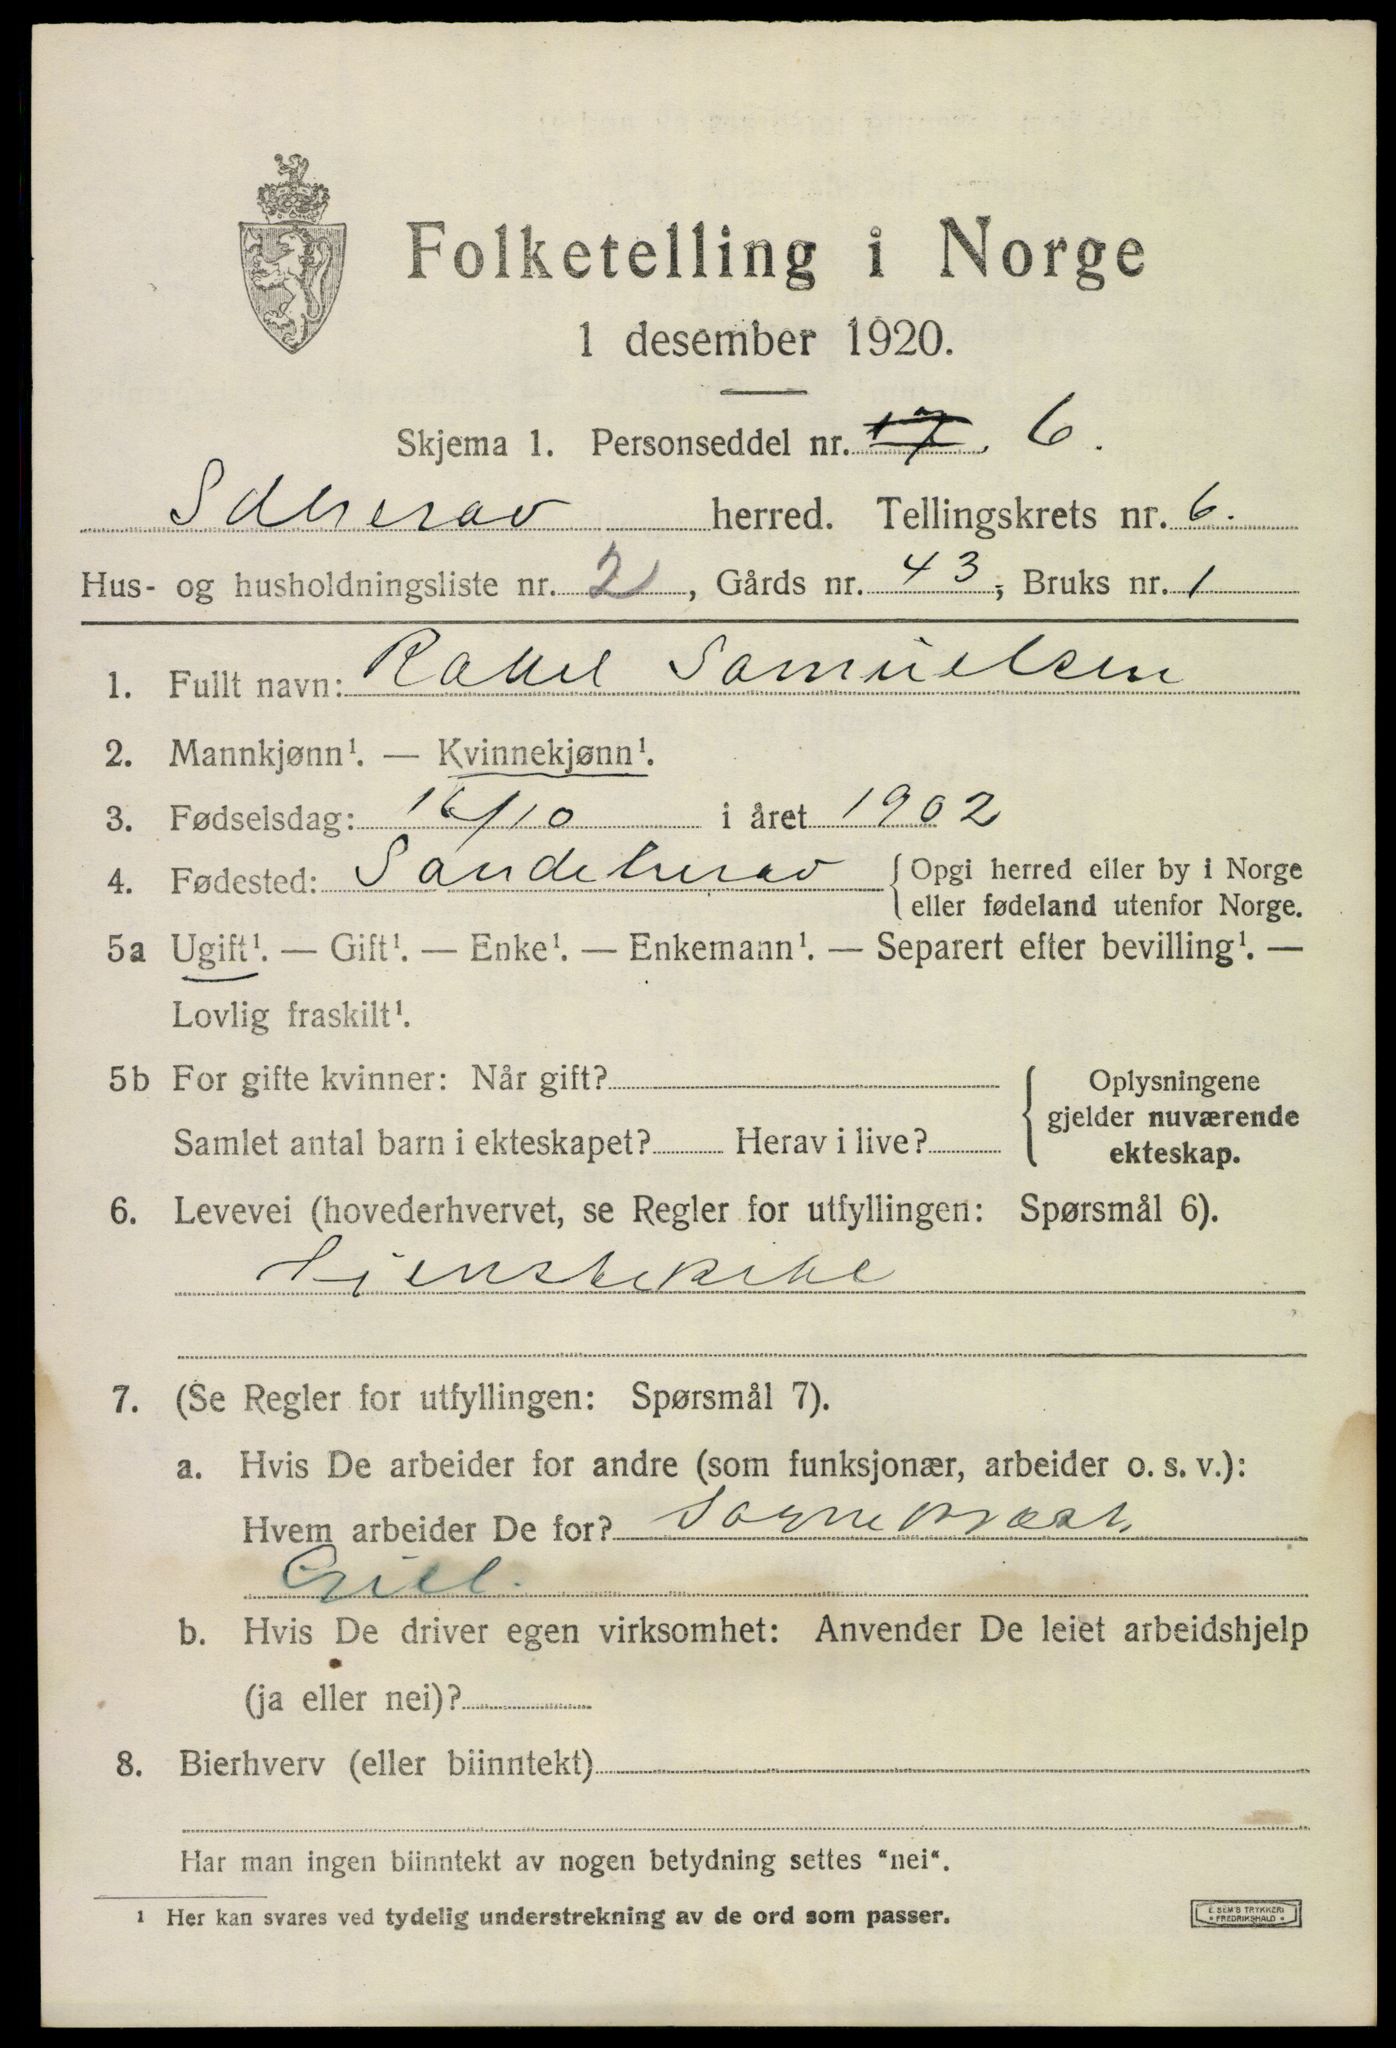 Folketelling i Norge
1 desember 1920.
Skjema 1. Personseddel nr. 17. 6.
Sdherav herred. Tellingskrets nr. 6.
Hus- og husholdningsliste nr. 2, Gårds nr. 43, Bruks nr. 1
1. Fullt navn: Rakel Samuelsen
2. Mannkjønn¹. — Kvinnekjønn¹.
3. Fødselsdag: 16/10 i året 1902
4. Fødested: Sandeherav {Opgi herred eller by i Norge
eller fødeland utenfor Norge.
5a Ugift¹. — Gift¹. — Enke¹. — Enkemann¹. — Separert efter bevilling¹. —
Lovlig fraskilt¹.
5b For gifte kvinner: Når gift? { Oplysningene
gjelder nuværende
Samlet antal barn i ekteskapet? Herav i live? ekteskap.
6. Levevei (hovederhvervet, se Regler for utfyllingen: Spørsmål 6).
Tjenstepike
7. (Se Regler for utfyllingen: Spørsmål 7).
a. Hvis De arbeider for andre (som funksjonær, arbeider o. s. v.):
Hvem arbeider De for? Sogneprest
b. Hvis De driver egen virksomhet: Anvender De leiet arbeidshjelp
(ja eller nei)?
8. Bierhverv (eller biinntekt)
Har man ingen biinntekt av nogen betydning settes "nei".
¹ Her kan svares ved tydelig understrekning av de ord som passer.
E. SEM'S TRYKKERI
FREDRIKSHALD